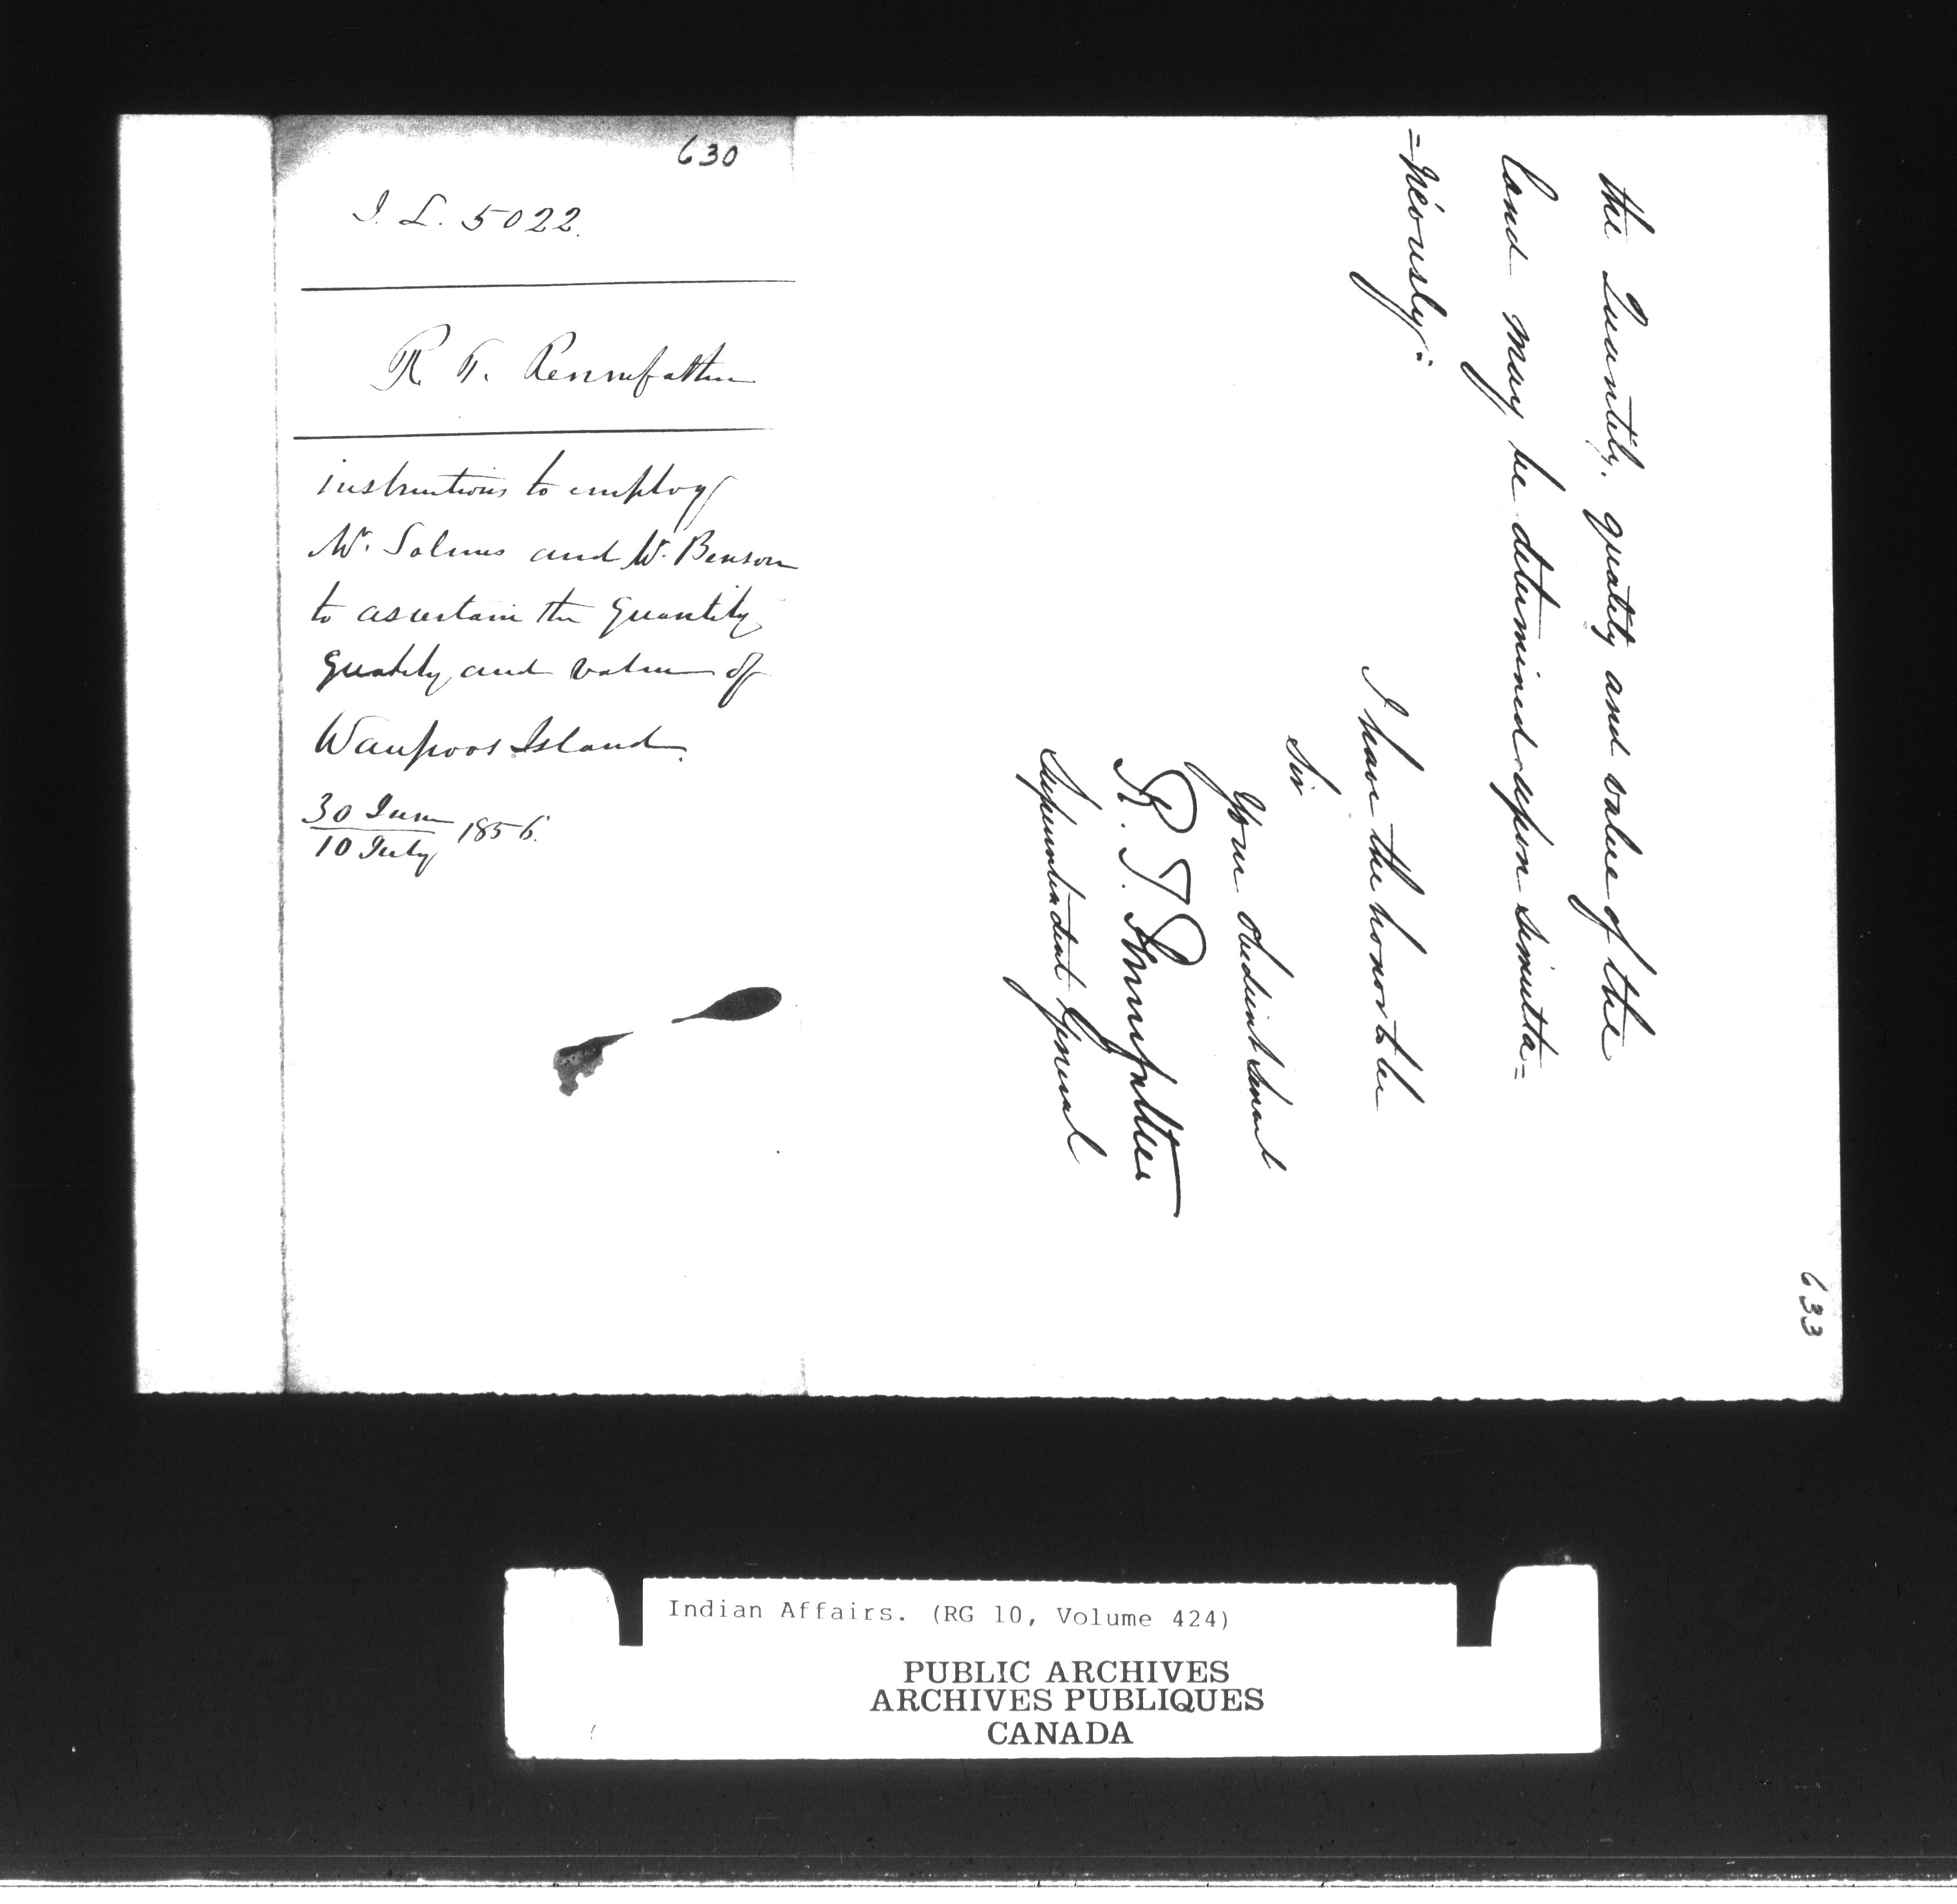 630
I. L. 5022.
R. T. Pennefather
instructions to employ
Mr. Solmes and W. Benson
to ascertain the quantity
quality and value of
Waupoos Island.
30 June
10 July 1856.
633
the Quantity, quality and value of the
land may be determined upon simulta=
=neously."
I have the honor to be
Sir
Your obedient Servant
R. T. Pennefather
Superintendent General
Indian Affairs. (RG 10, Volume 424)
PUBLIC ARCHIVES
ARCHIVES PUBLIQUES
CANADA